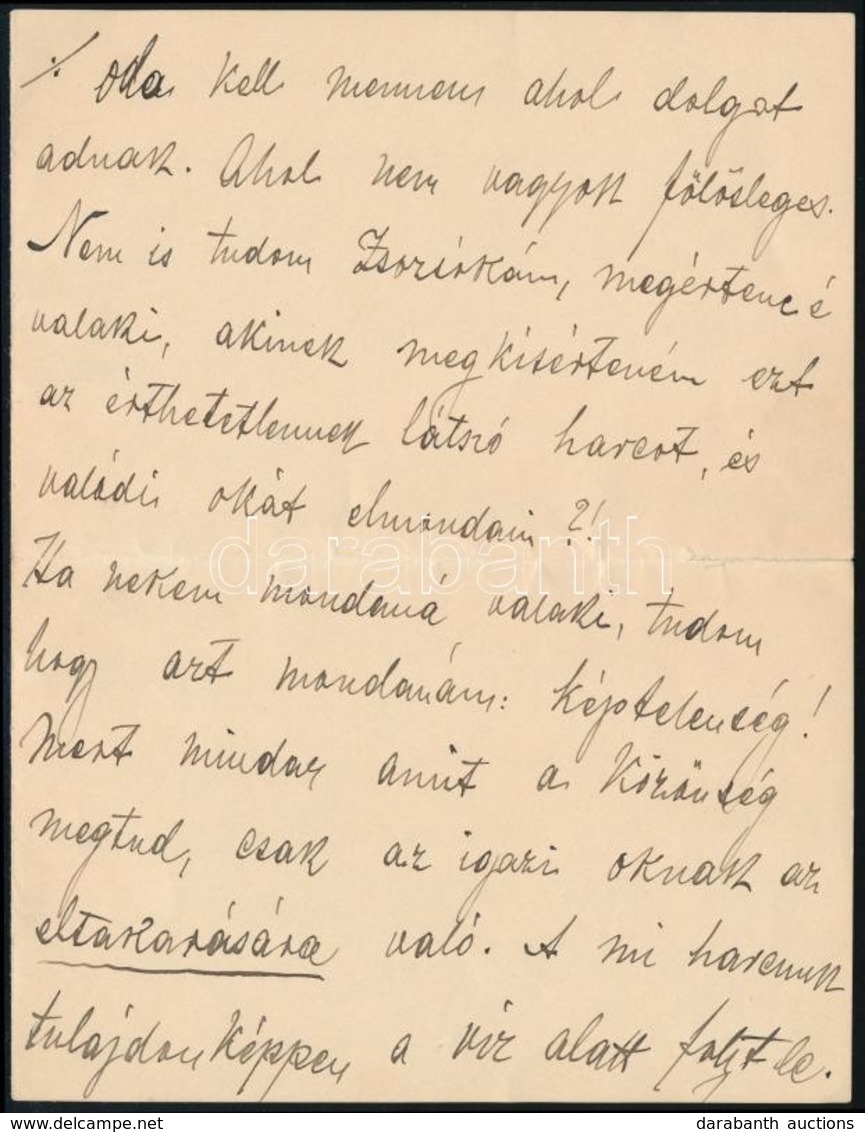 ./. Oda kell mennem ahol dolgot
adnak. Ahol nem vagyok fölösleges.
Nem is tudom Zsozsókám, megértene é
valaki, akinek megkisérteném ezt
az érthetetlennek látszó harcot, és
valódi okát elmondani?!
Ha nekem mondaná valaki, tudom
hogy azt mondanám: Képtelenség!
Mert mindaz amit a Közönség
megtud, csak az igazi oknak az
eltakarására való. A mi harcunk
tulajdonképpen a víz alatt folyt le.
darabanth
darabanth auctions